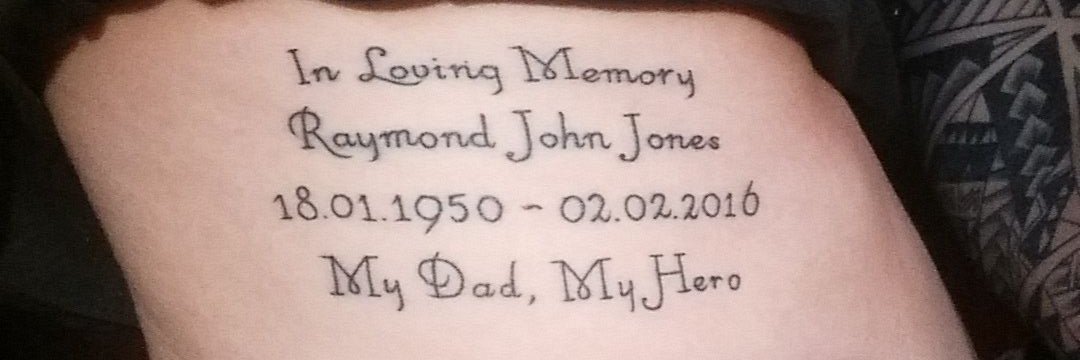 In Loving Memory
Raymond John Jones
18.01.1950 - 02.02.2016
My Dad, My Hero